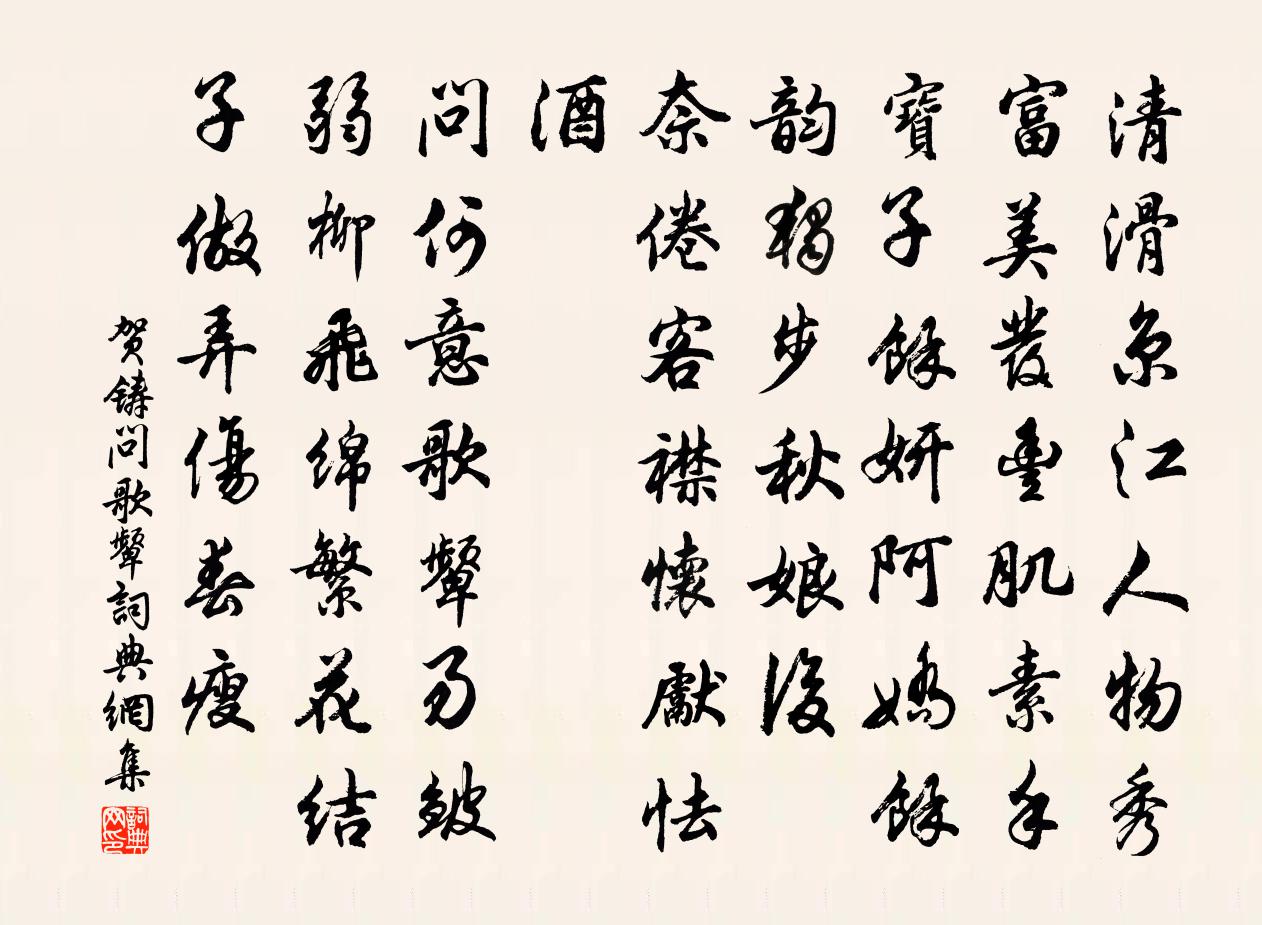 清滑京江人物秀
富美發豐肌素手
寶子餘妍阿嬌餘
韵獨步秋娘後
奈倦客襟懷獻怯
酒
問何意歌顰易皺
弱柳飛綿繁花結
子做弄傷春瘦
贺鑄問歌顰詞典網集
詞典网印